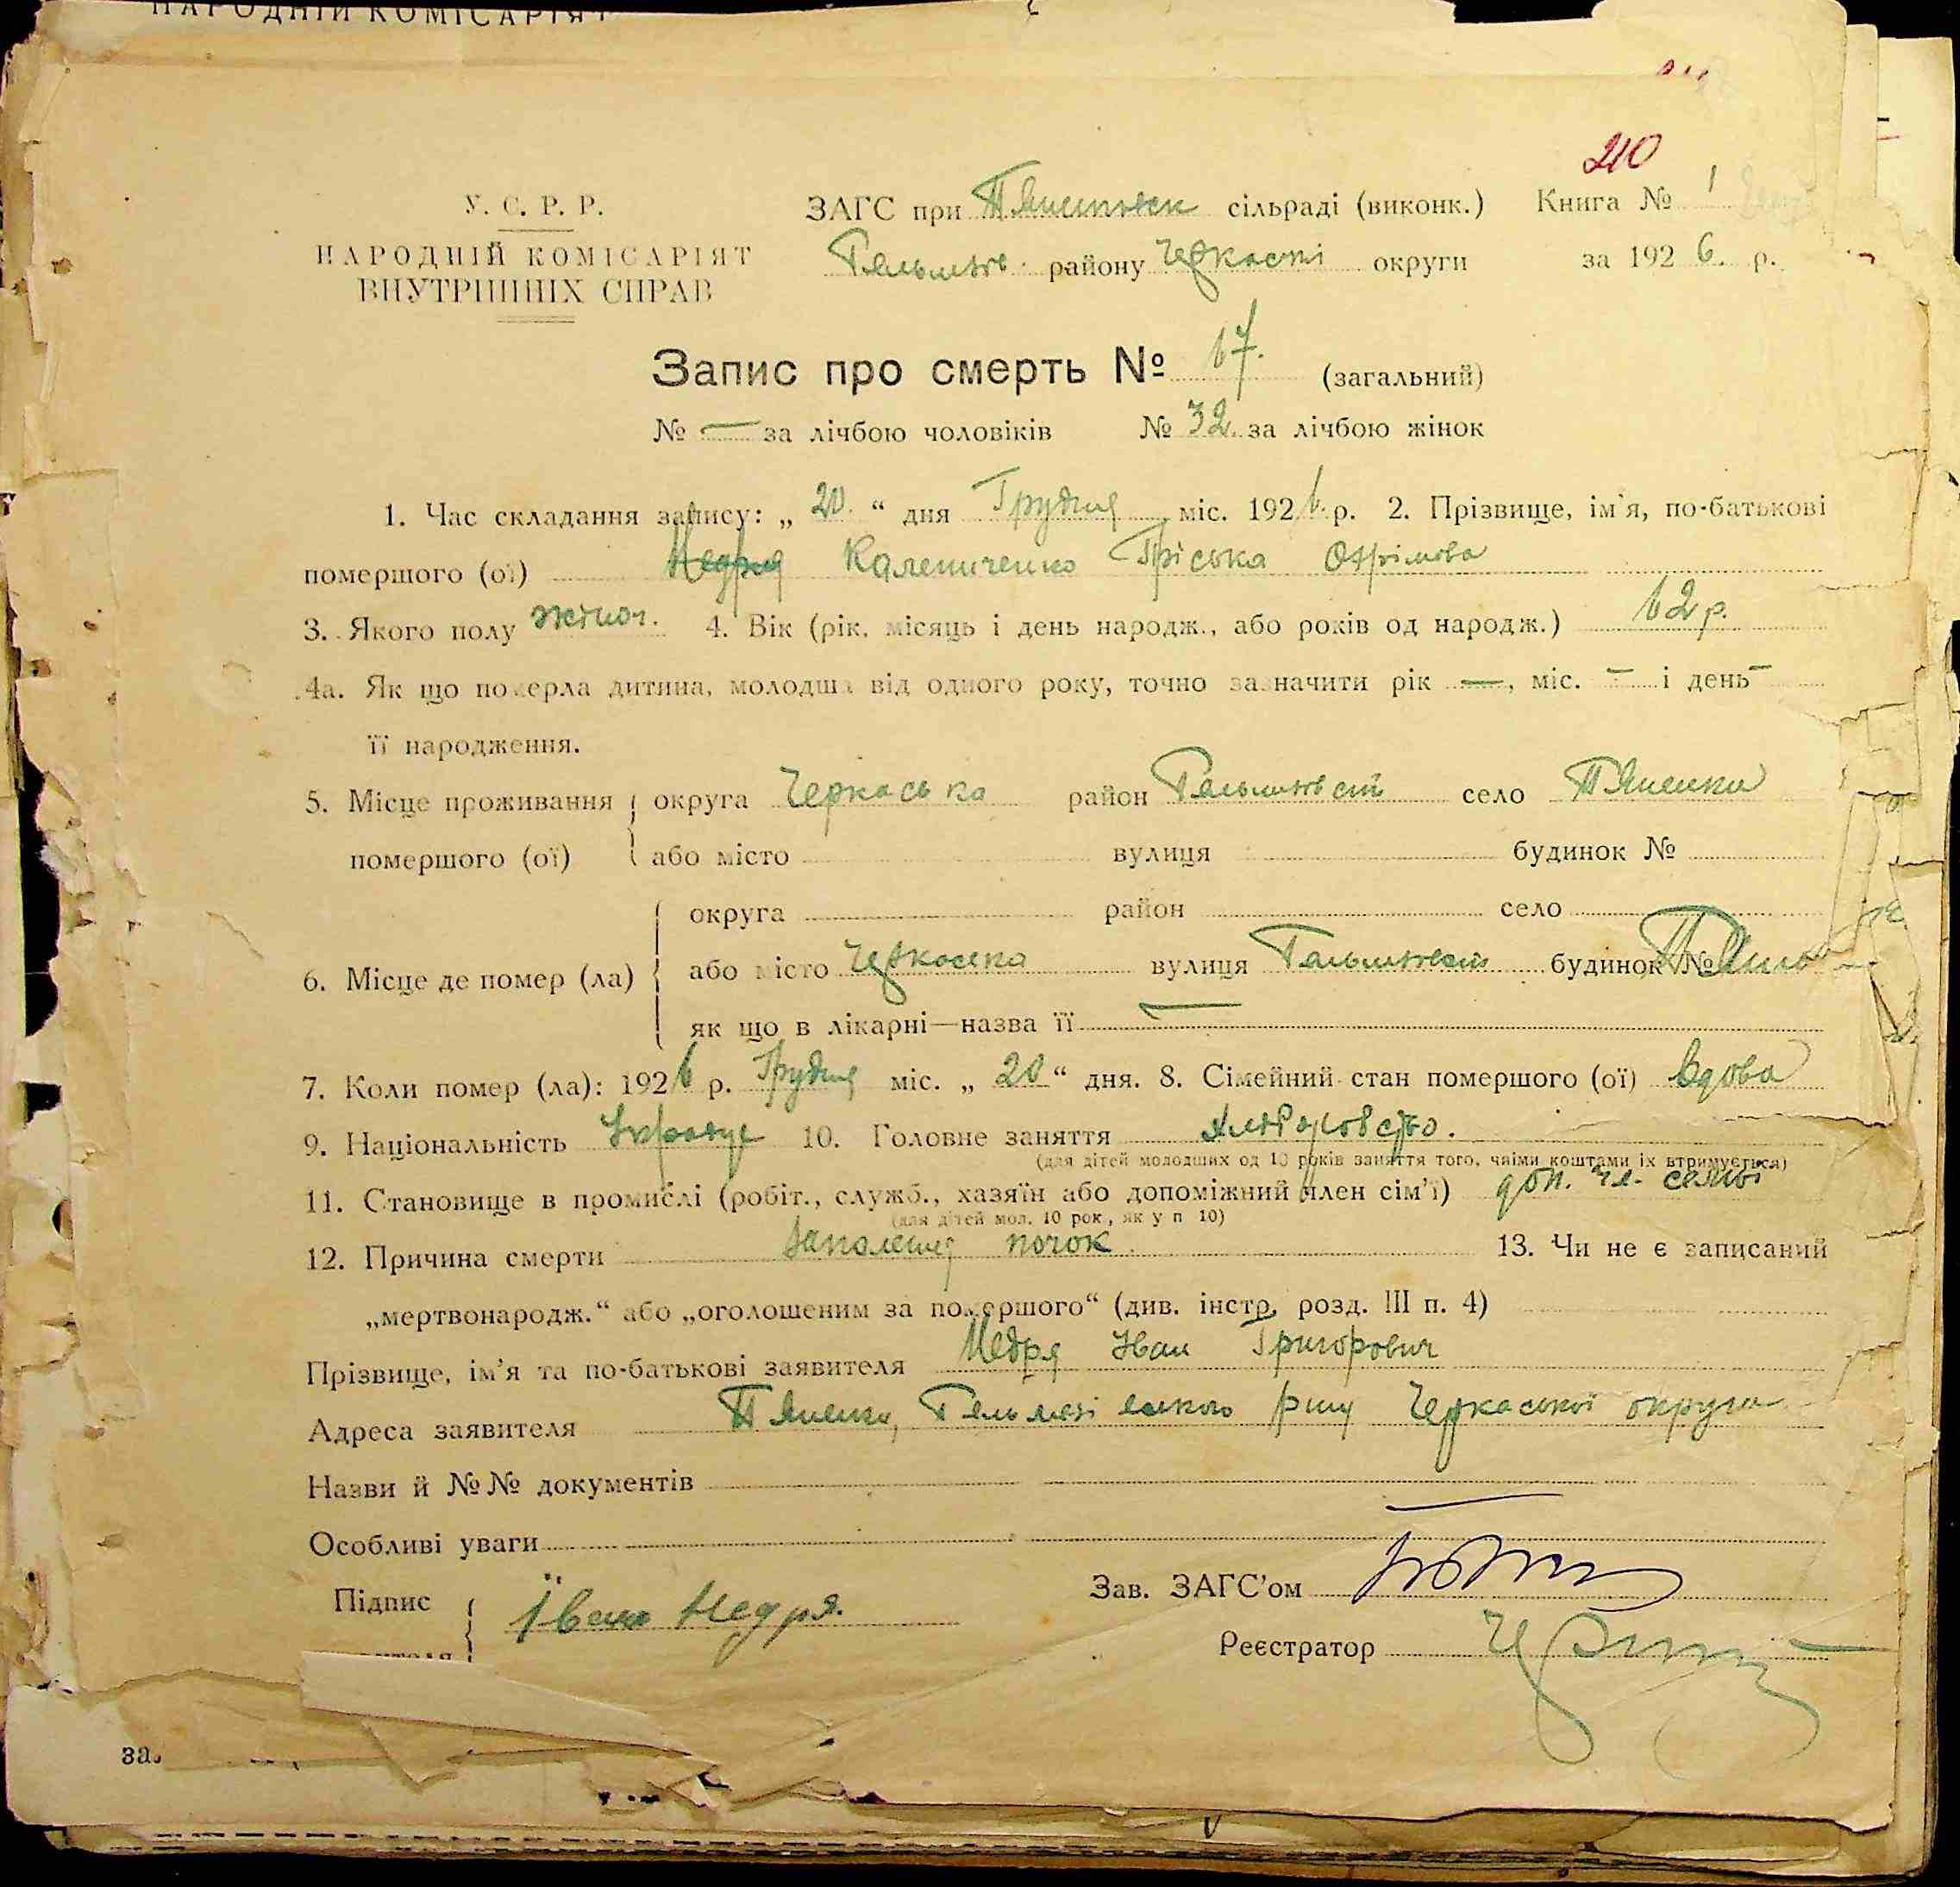 НАРОДНІЙ КОМІСАРІЯТ
210
У. С. Р. Р. ЗАГС при сільраді (виконк.) Книга № 1
НАРОДНІЙ КОМІСАРІЯТ району Черкаської округи за 1926. р.
ВНУТРІШНІХ СПРАВ
Запис про смерть № 67. (загальний)
№ — за лічбою чоловіків № 32. за лічбою жінок
1. Час складання запису: „ 20 “ дня Грудня міс. 1926 р. 2. Прізвище, ім'я, по-батькові
помершого (ої) Недря Калениченко Пріська Охрімова
3. Якого полу жіноч. 4. Вік (рік, місяць і день народж., або років од народж.) 62 р.
4а. Як що померла дитина, молодша від одного року, точно зазначити рік —, міс. — і день —
її народження.
5. Місце проживання округа Черкаська район село
помершого (ої) або місто вулиця будинок №
округа район село
6. Місце де помер (ла) або місто Черкаська вулиця будинок №
як що в лікарні—назва її —
7. Коли помер (ла): 1926 р. Грудня міс. „ 20 “ дня. 8. Сімейний стан помершого (ої) вдова
9. Національність 10. Головне заняття хліборобство.
(для дітей молодших од 10 років заняття того, чиїми коштами їх втримується)
11. Становище в промислі (робіт., служб., хазяїн або допоміжний член сім'ї) доп. чл. семьї
(для дітей мол. 10 рок., як у п 10)
12. Причина смерти запалення почок 13. Чи не є записаний
„мертвонародж.“ або „оголошеним за помершого“ (див. інстр. розд. III п. 4)
Прізвище, ім'я та по-батькові заявителя Недря Іван Григорович
Адреса заявителя р-ну Черкаської округи
Назви й №№ документів
Особливі уваги
Підпис Іван Недря. Зав. ЗАГС'ом
Реєстратор